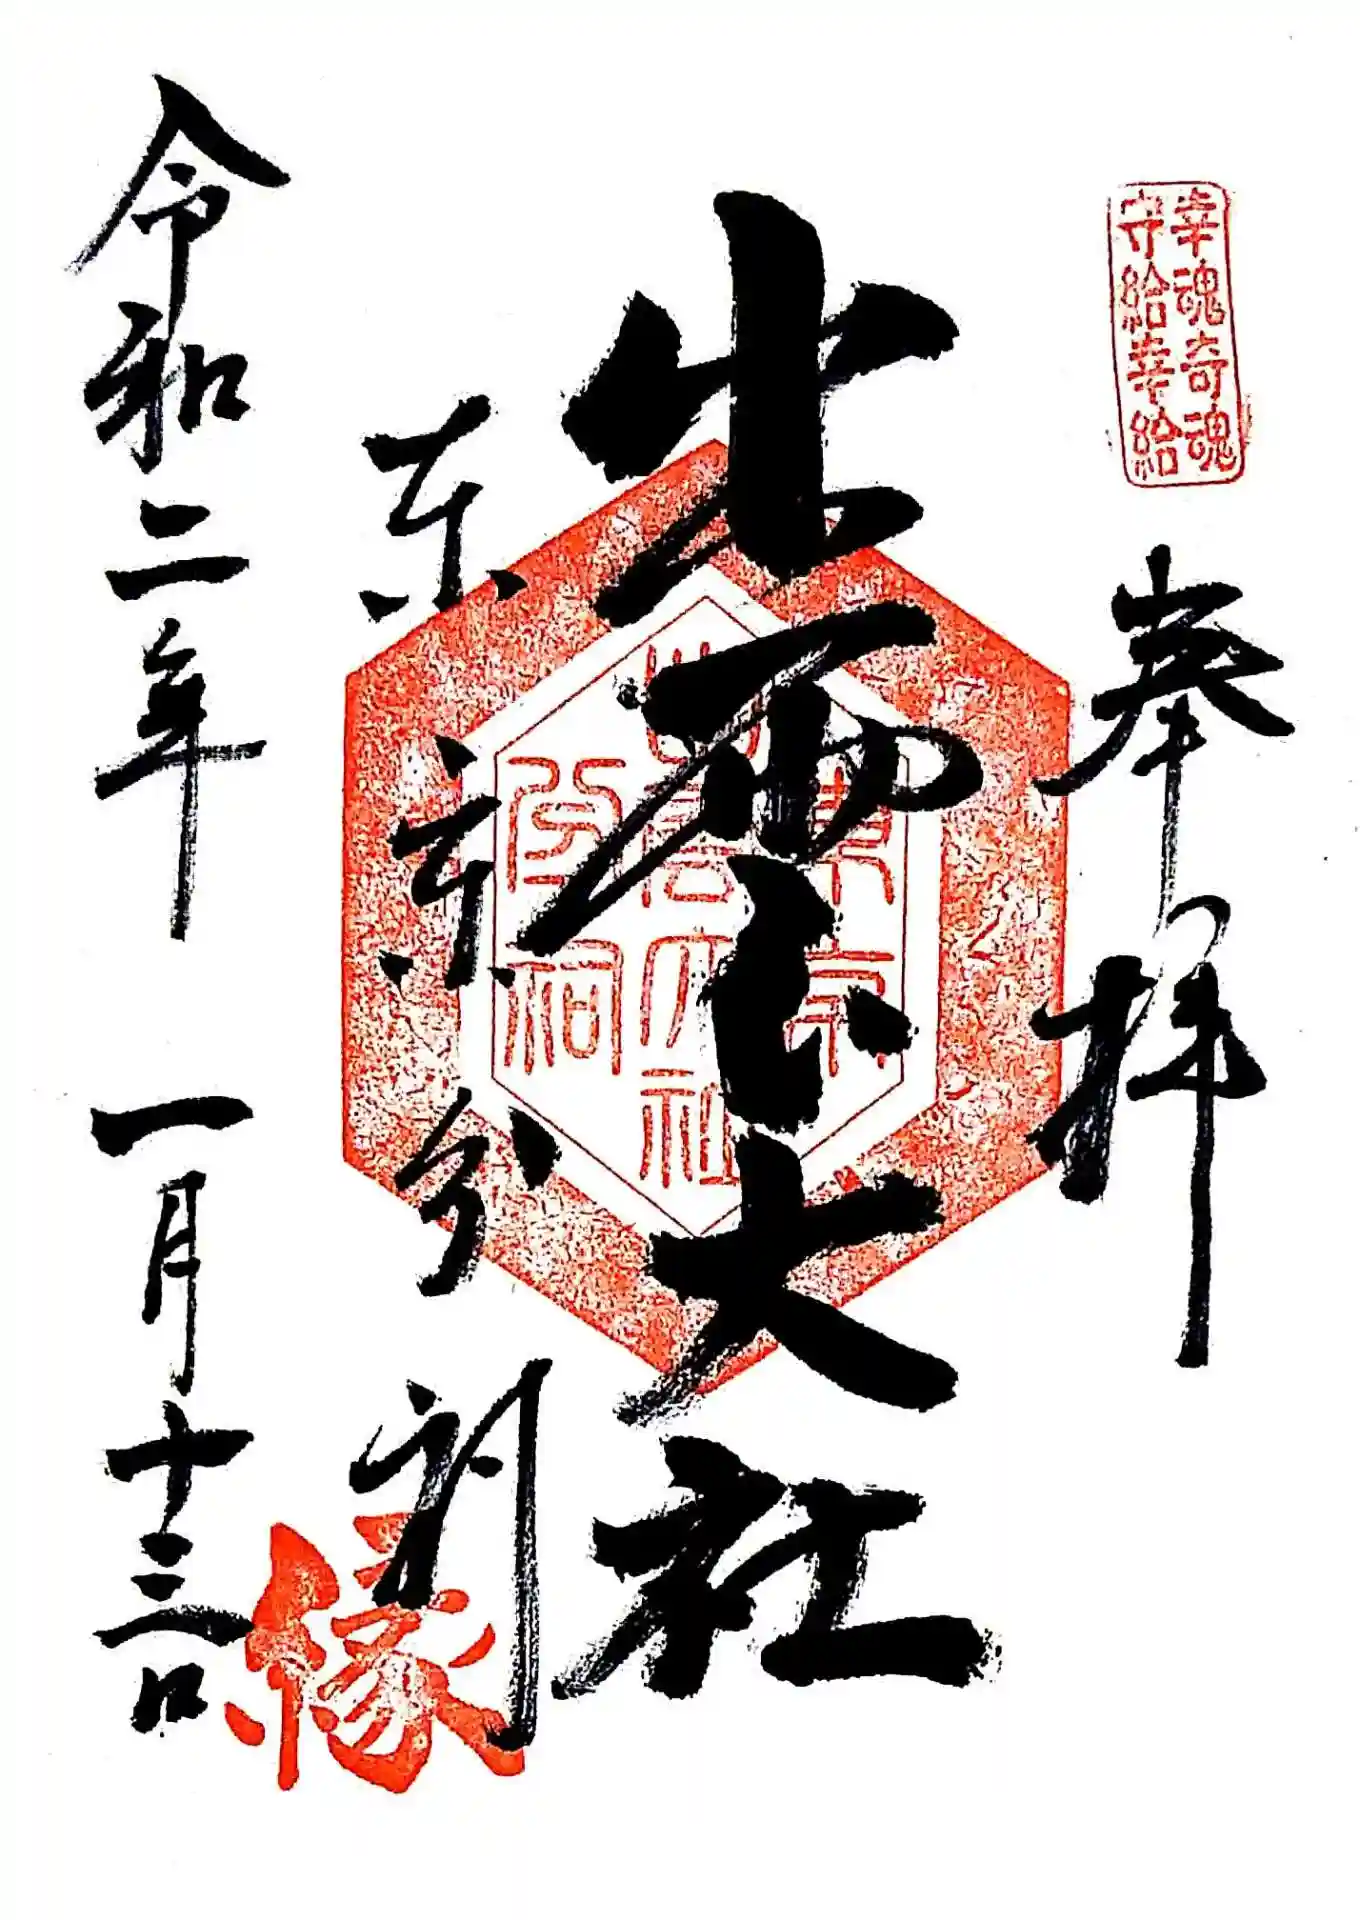 幸魂奇魂
守給幸給
奉拝
出雲大社
東京分祠
東京
出雲大社
分祠
縁
令和二年 一月十三日